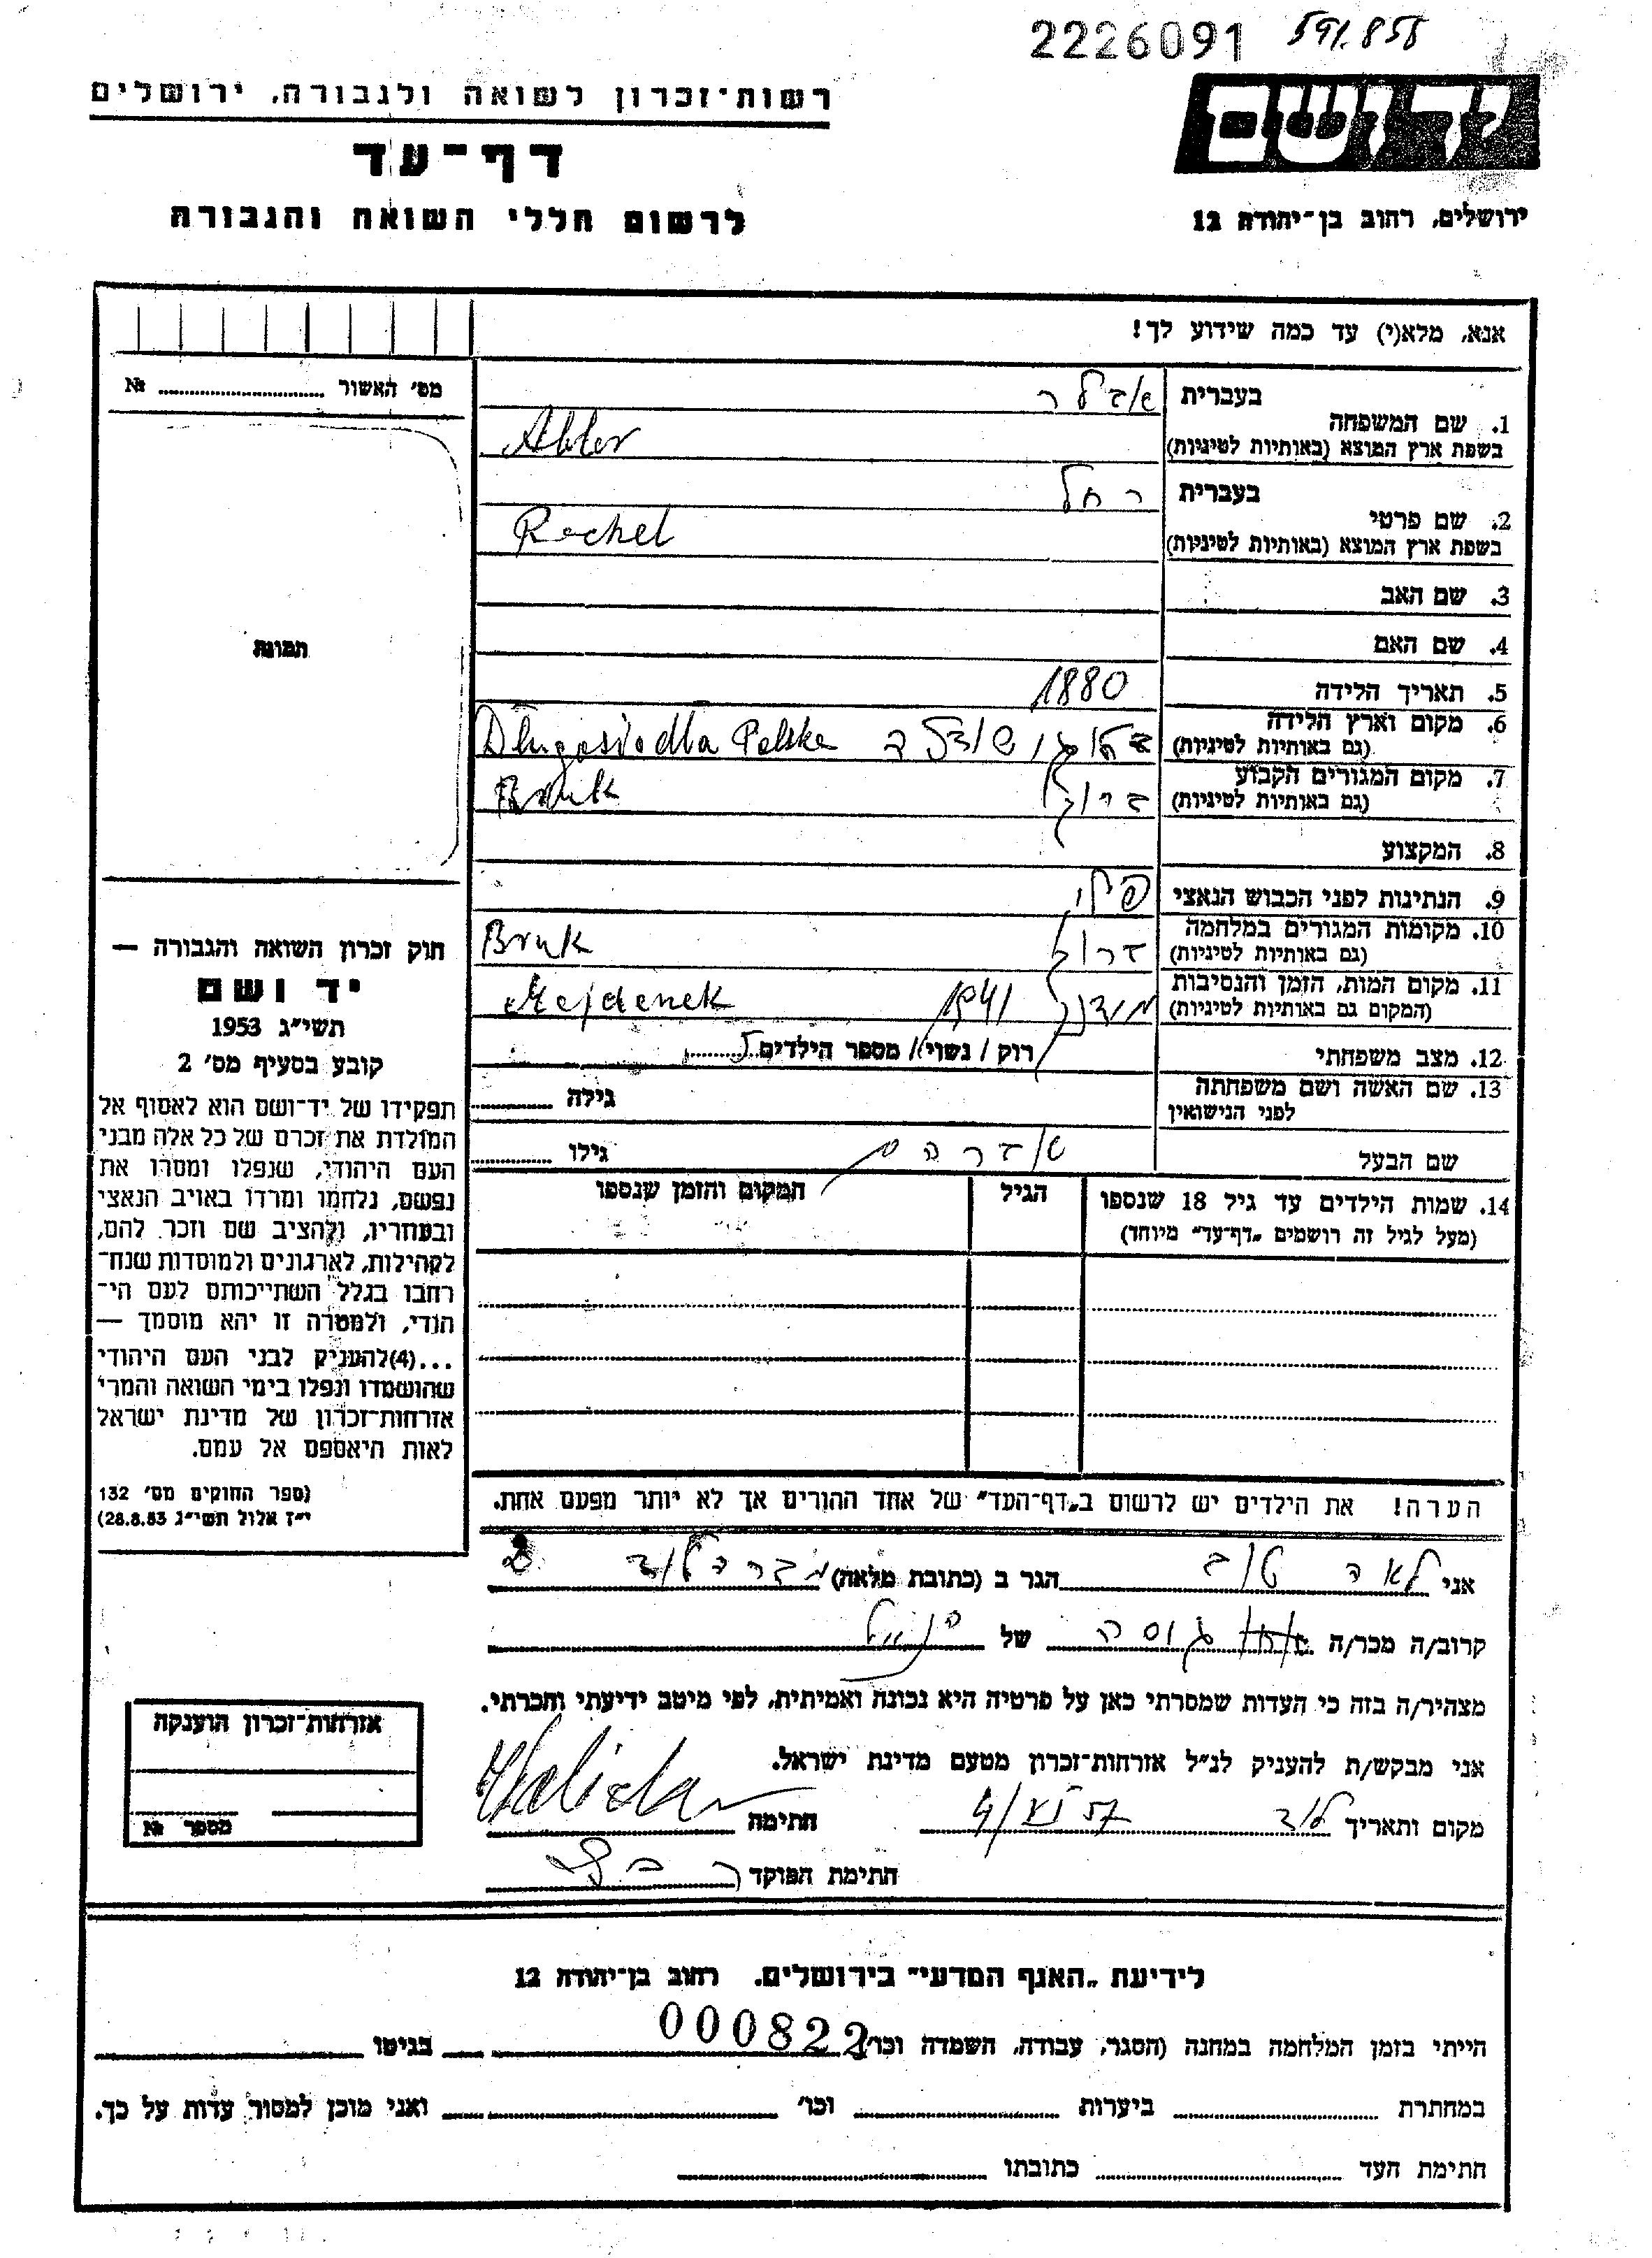 2226091 591.855
יד ושם
רשות-זכרון לשואה ולגבורה, ירושלים
דף-עד
לרשום חללי השואה והגבורה
ירושלים, רחוב בן-יהודה 12
אנא, מלא(י) עד כמה שידוע לך!
מס' האשור № 
בעברית אדלר
1. שם המשפחה
בשפת ארץ המוצא (באותיות לטיניות) Adler
בעברית רחל
2. שם פרטי
בשפת ארץ המוצא (באותיות לטיניות) Rachel
3. שם האב
4. שם האם
תמונה
5. תאריך הלידה 1880
6. מקום וארץ הלידה
(גם באותיות לטיניות) Długosiodła Polska
7. מקום המגורים הקבוע
(גם באותיות לטיניות) ברוק Bruk
8. המקצוע
9. הנתינות לפני הכבוש הנאצי פולני
10. מקומות המגורים במלחמה
(גם באותיות לטיניות) ברוק Bruk
11. מקום המות, הזמן והנסיבות
(המקום גם באותיות לטיניות) מידנק 1941 Majdenek
12. מצב משפחתי רוק / נשוי/ מספר הילדים 5
13. שם האשה ושם משפחתה
לפני הנישואין גילה
שם הבעל אברהם גילו
14. שמות הילדים עד גיל 18 שנספו הגיל המקום והזמן שנספו
(מעל לגיל זה רושמים "דף-עד" מיוחד)
חוק זכרון השואה והגבורה —
יד ושם
תשי"ג 1953
קובע בסעיף מס' 2
תפקידו של יד-ושם הוא לאסוף אל
המולדת את זכרם של כל אלה מבני
העם היהודי, שנפלו ומסרו את
נפשם, נלחמו ומרדו באויב הנאצי
ובעוזריו, ולהציב שם וזכר להם,
לקהילות, לארגונים ולמוסדות שנח-
רבו בגלל השתייכותם לעם הי-
הודי, ולמטרה זו יהא מוסמך —
...(4)להעניק לבני העם היהודי
שהושמדו ונפלו בימי השואה והמרי
אזרחות-זכרון של מדינת ישראל
לאות היאספם אל עמם.
(ספר החוקים מס' 132
י"ז אלול תשי"ג 28.8.53)
הערה! את הילדים יש לרשום ב"דף-העד" של אחד ההורים אך לא יותר מפעם אחת.
אני לאה טוב הגר ב (כתובת מלאה)
קרוב/ה מכר/ה גוסה של הנ"ל
מצהיר/ה בזה כי העדות שמסרתי כאן על פרטיה היא נכונה ואמיתית, לפי מיטב ידיעתי והכרתי.
אני מבקש/ת להעניק לנ"ל אזרחות-זכרון מטעם מדינת ישראל.
מקום ותאריך לוד 4/VI 57 חתימה
חתימת הפוקד
אזרחות-זכרון הוענקה
מספר №
לידיעת "האגף המדעי" בירושלים, רחוב בן-יהודה 12
הייתי בזמן המלחמה במחנה (הסגר, עבודה, השמדה וכו') 000822 בגיטו
במחתרת ביערות וכו' ואני מוכן למסור עדות על כך.
חתימת העד כתובתו